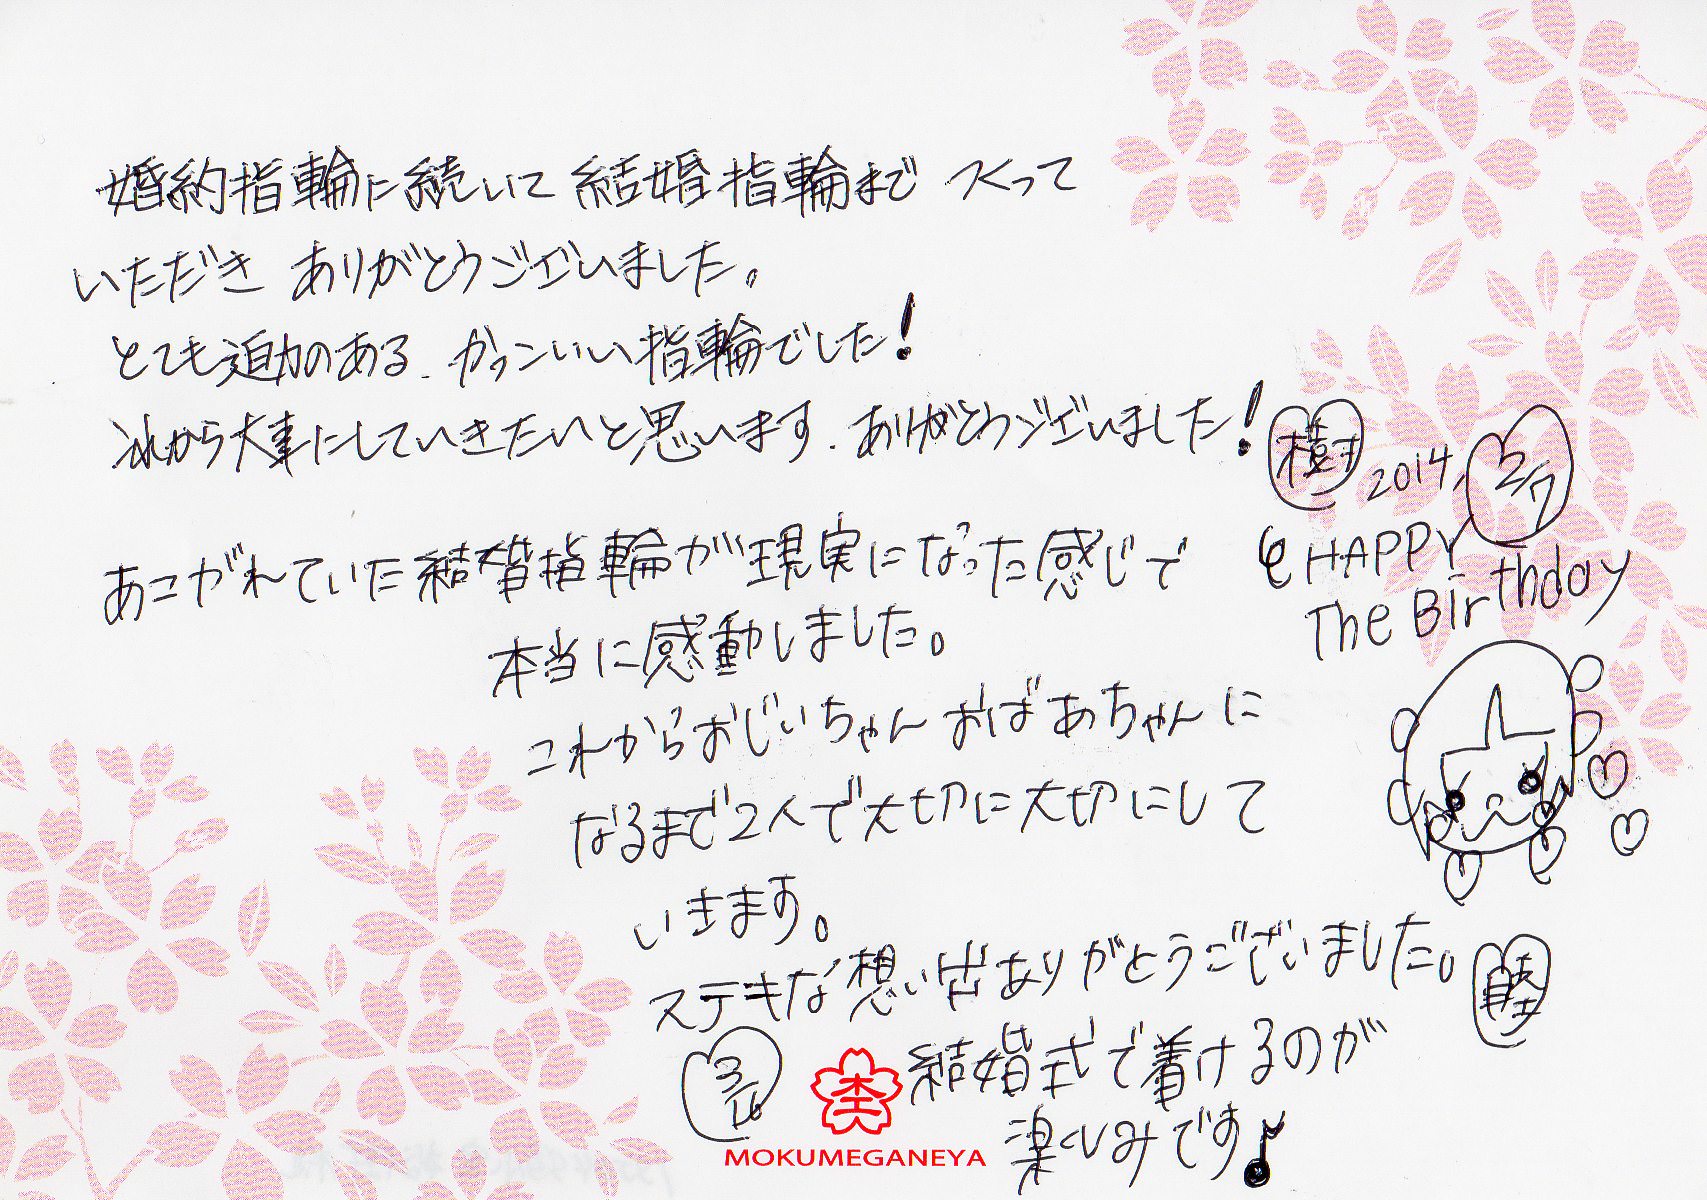 婚約指輪に続いて 結婚指輪まで つくって
いただき ありがとうございました。
とても迫力のある、かっこいい指輪でした!
これから大事にしていきたいと思います、ありがとうございました!
樹
2014, 2/7
HAPPY
The Birthday
あこがれていた結婚指輪が現実になった感じで
本当に感動しました。
これからおじいちゃん おばあちゃんに
なるまで2人で大切に大切にして
いきます。
ステキな想い出ありがとうございました。
睦
3/16
結婚式で着けるのが
楽しみです♪
MOKUMEGANEYA